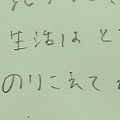 生活はと
のりこえて